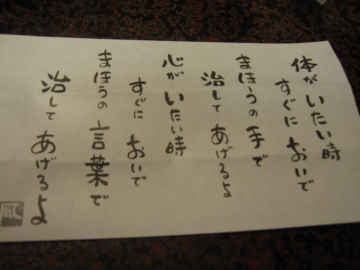 体がいたい時
すぐにおいで
まほうの手で
治してあげるよ
心がいたい時
すぐにおいで
まほうの言葉で
治してあげるよ